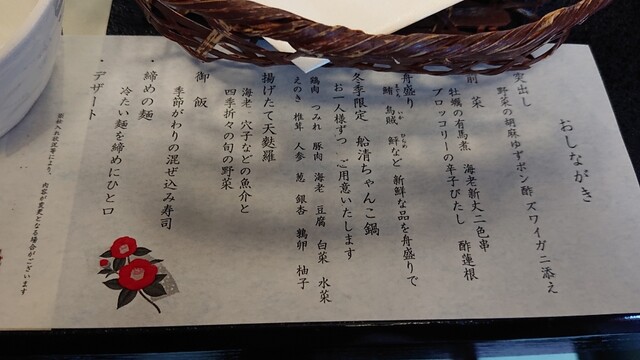 おしながき
突出し
野菜の胡麻ゆずポン酢ズワイガニ添え
前 菜
牡蠣の有馬煮 海老新丈二色串
ブロッコリーの辛子びたし 酢蓮根
舟盛り
鮪 烏賊 鮃など 新鮮な品を舟盛りで
冬季限定 船清ちゃんこ鍋
お一人様ずつ ご用意いたします
鶏肉 つみれ 豚肉 海老 豆腐 白菜 水菜
えのき 椎茸 人参 葱 銀杏 鶉卵 柚子
揚げたて天麩羅
海老 穴子などの魚介と
四季折々の旬の野菜
御 飯
季節がわりの混ぜ込み寿司
締めの麺
冷たい麺を締めにひと口
デザート
内容が変更となる場合がございます